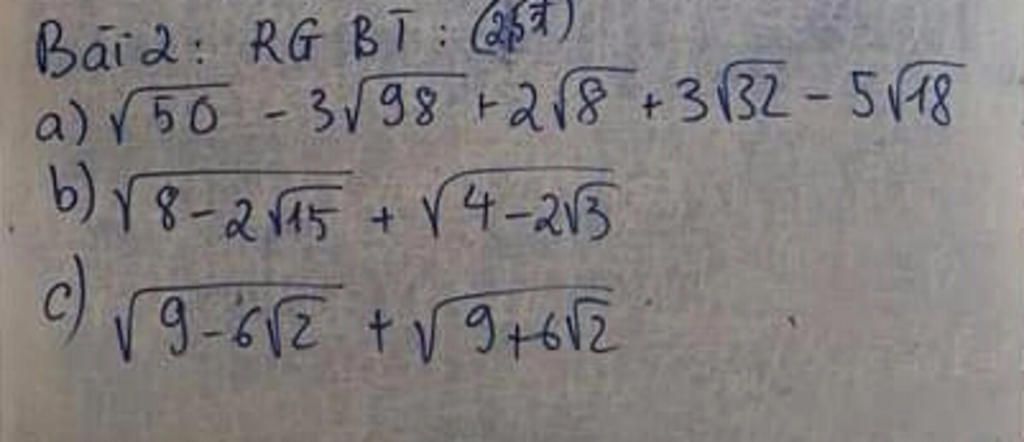 Bài 2: RG BT: (2,5đ)
a) √50 - 3√98 + 2√8 + 3√32 - 5√18
b) √(8-2√15) + √(4-2√3)
c) √(9-6√2) + √(9+6√2)